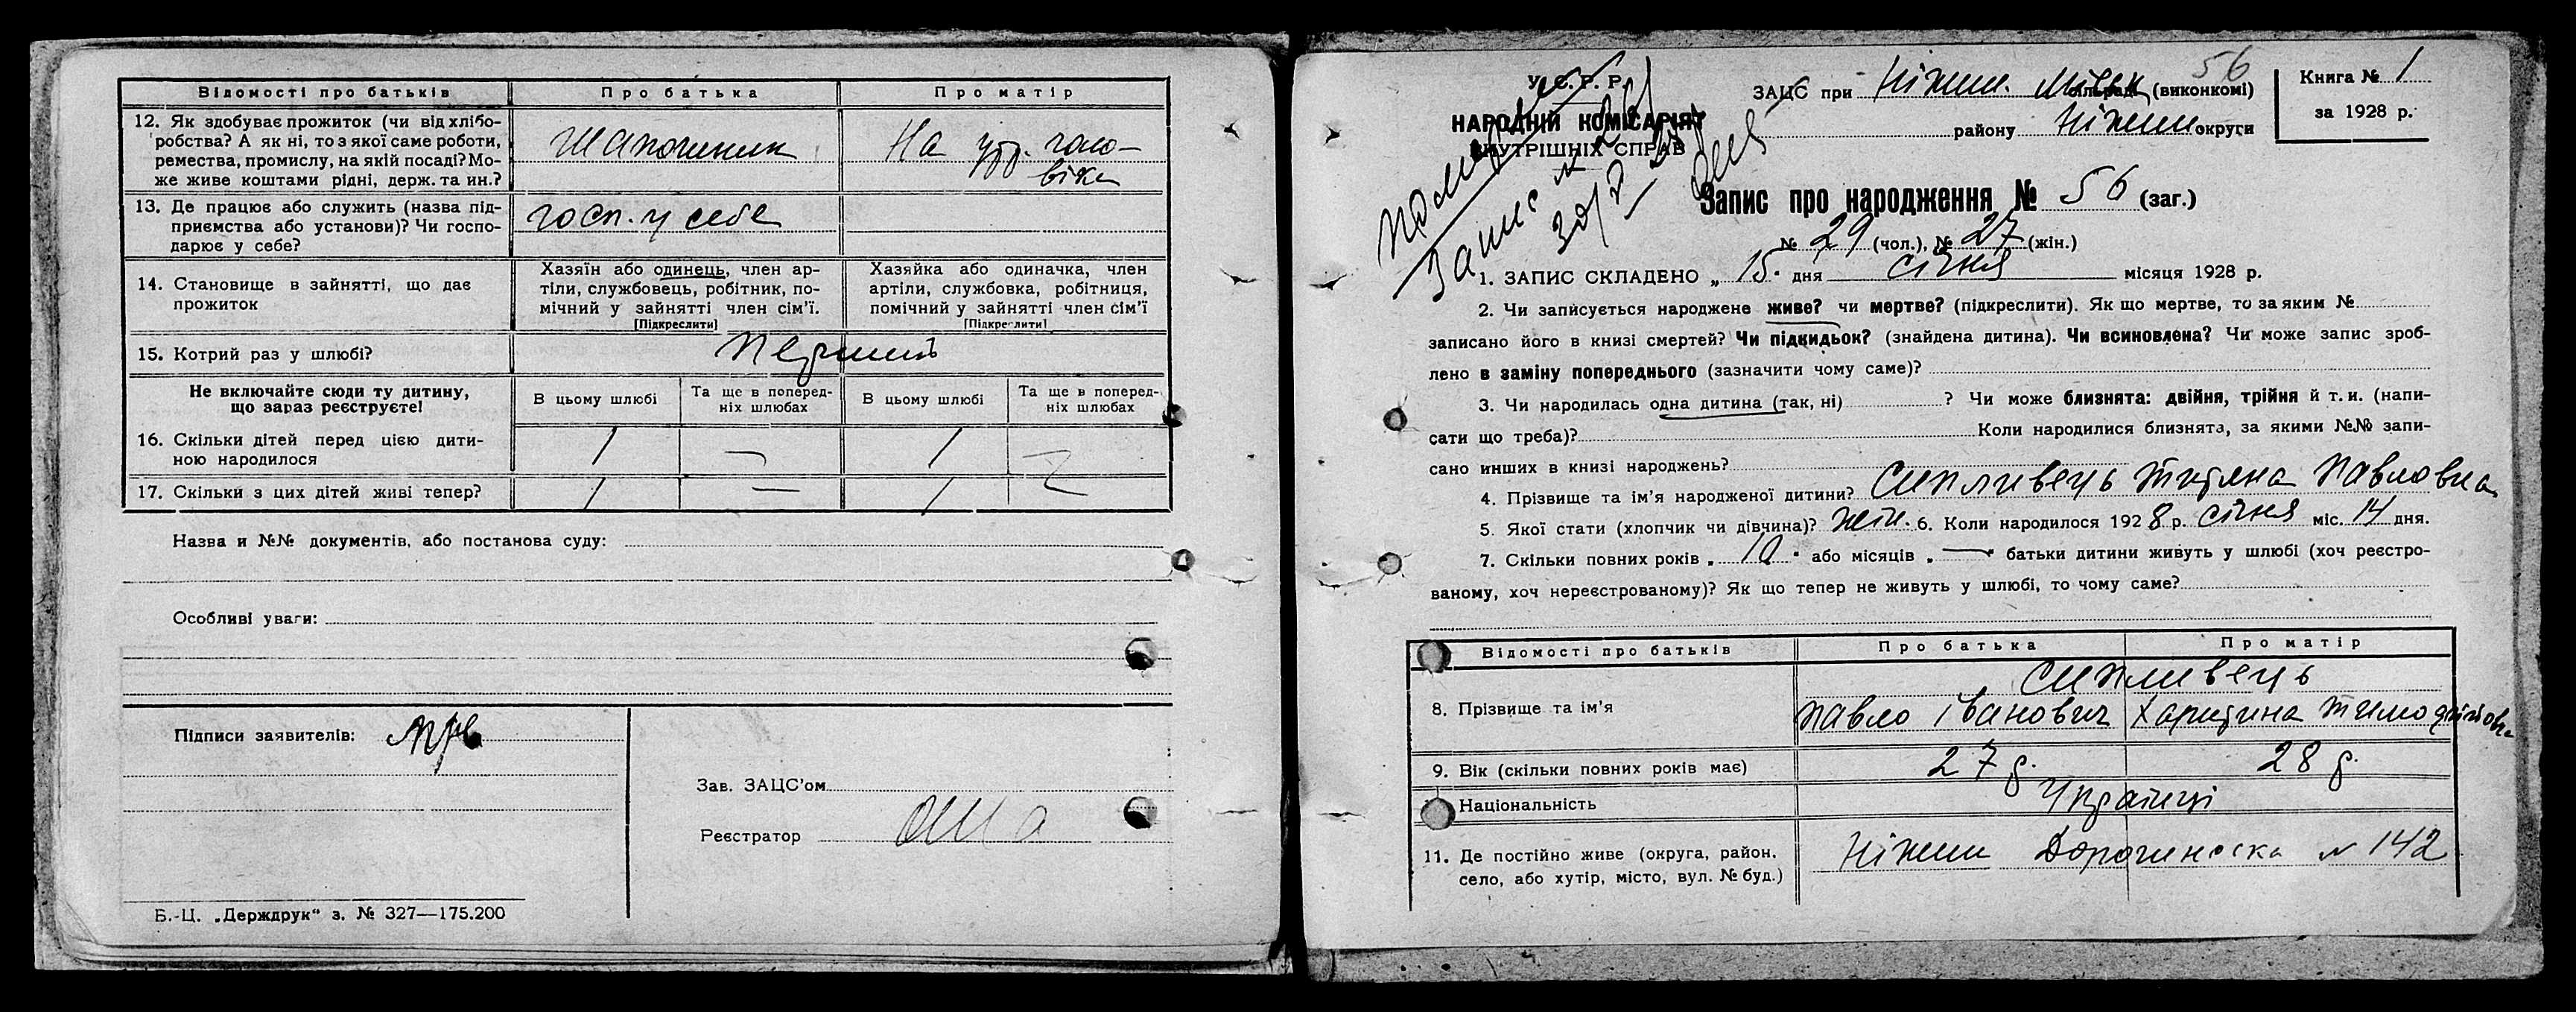 Відомості про батьків Про батька Про матір
12. Як здобуває прожиток (чи від хлібо-
робства? А як ні, то з якої саме роботи,
ремества, промислу, на якій посаді? Мо-
же живе коштами рідні, держ. та ин.?
Шапошник
На утр. чоло-
віка
13. Де працює або служить (назва під-
приємства або установи)? Чи госпо-
дарює у себе?
госп. у себе
14. Становище в зайнятті, що дає
прожиток
Хазяїн або одинець, член ар-
тіли, службовець, робітник, по-
мічний у зайнятті член сім'ї.
[Підкреслити]
Хазяйка або одиначка, член
артіли, службовка, робітниця,
помічний у зайнятті член сім'ї
[Підкреслити]
15. Котрий раз у шлюбі? перший
Не включайте сюди ту дитину,
що зараз реєструєте!
В цьому шлюбі
Та ще в поперед-
ніх шлюбах
В цьому шлюбі
Та ще в поперед-
ніх шлюбах
16. Скільки дітей перед цією дити-
ною народилося
1 — 1 —
17. Скільки з цих дітей живі тепер? 1 — 1
Назва и №№ документів, або постанова суду:
Особливі уваги:
Підписи заявителів:
Зав. ЗАЦС'ом
Реєстратор
Б.-Ц. „Держдрук“ з. № 327—175.200
У. С. Р. Р.
НАРОДНІЙ КОМІСАРІЯТ
ВНУТРІШНІХ СПРАВ
Запис №
56
ЗАЦС при Ніжин. сільраді (виконкомі)
району Ніжин округи
Книга № 1
за 1928 р.
Запис про народження № 56 (заг.)
№ 29 (чол.), № 27 (жін.)
1. ЗАПИС СКЛАДЕНО „ 15 " дня січня місяця 1928 р.
2. Чи записується народжене живе? чи мертве? (підкреслити). Як що мертве, то за яким №
записано його в книзі смертей? Чи підкидьок? (знайдена дитина). Чи всиновлена? Чи може запис зроб-
лено в заміну попереднього (зазначити чому саме)?
3. Чи народилась одна дитина (так, ні) ? Чи може близнята: двійня, трійня й т. и. (напи-
сати що треба)? Коли народилися близнята, за якими №№ запи-
сано инших в книзі народжень?
4. Прізвище та ім'я народженої дитини? Сипливець Титяна Павловна
5. Якої стати (хлопчик чи дівчина)? жін. 6. Коли народилося 1928 р. січня міс. 14 дня.
7. Скільки повних років „ 10 " або місяців „ — " батьки дитини живуть у шлюбі (хоч реєстро-
ваному, хоч нереєстрованому)? Як що тепер не живуть у шлюбі, то чому саме?
Відомості про батьків Про батька Про матір
Сипливець
8. Прізвище та ім'я Павло Іванович Харитина
9. Вік (скільки повних років має) 27 р. 28 р.
Національність Українці
11. Де постійно живе (округа, район,
село, або хутір, місто, вул. № буд.)
Ніжин № 142